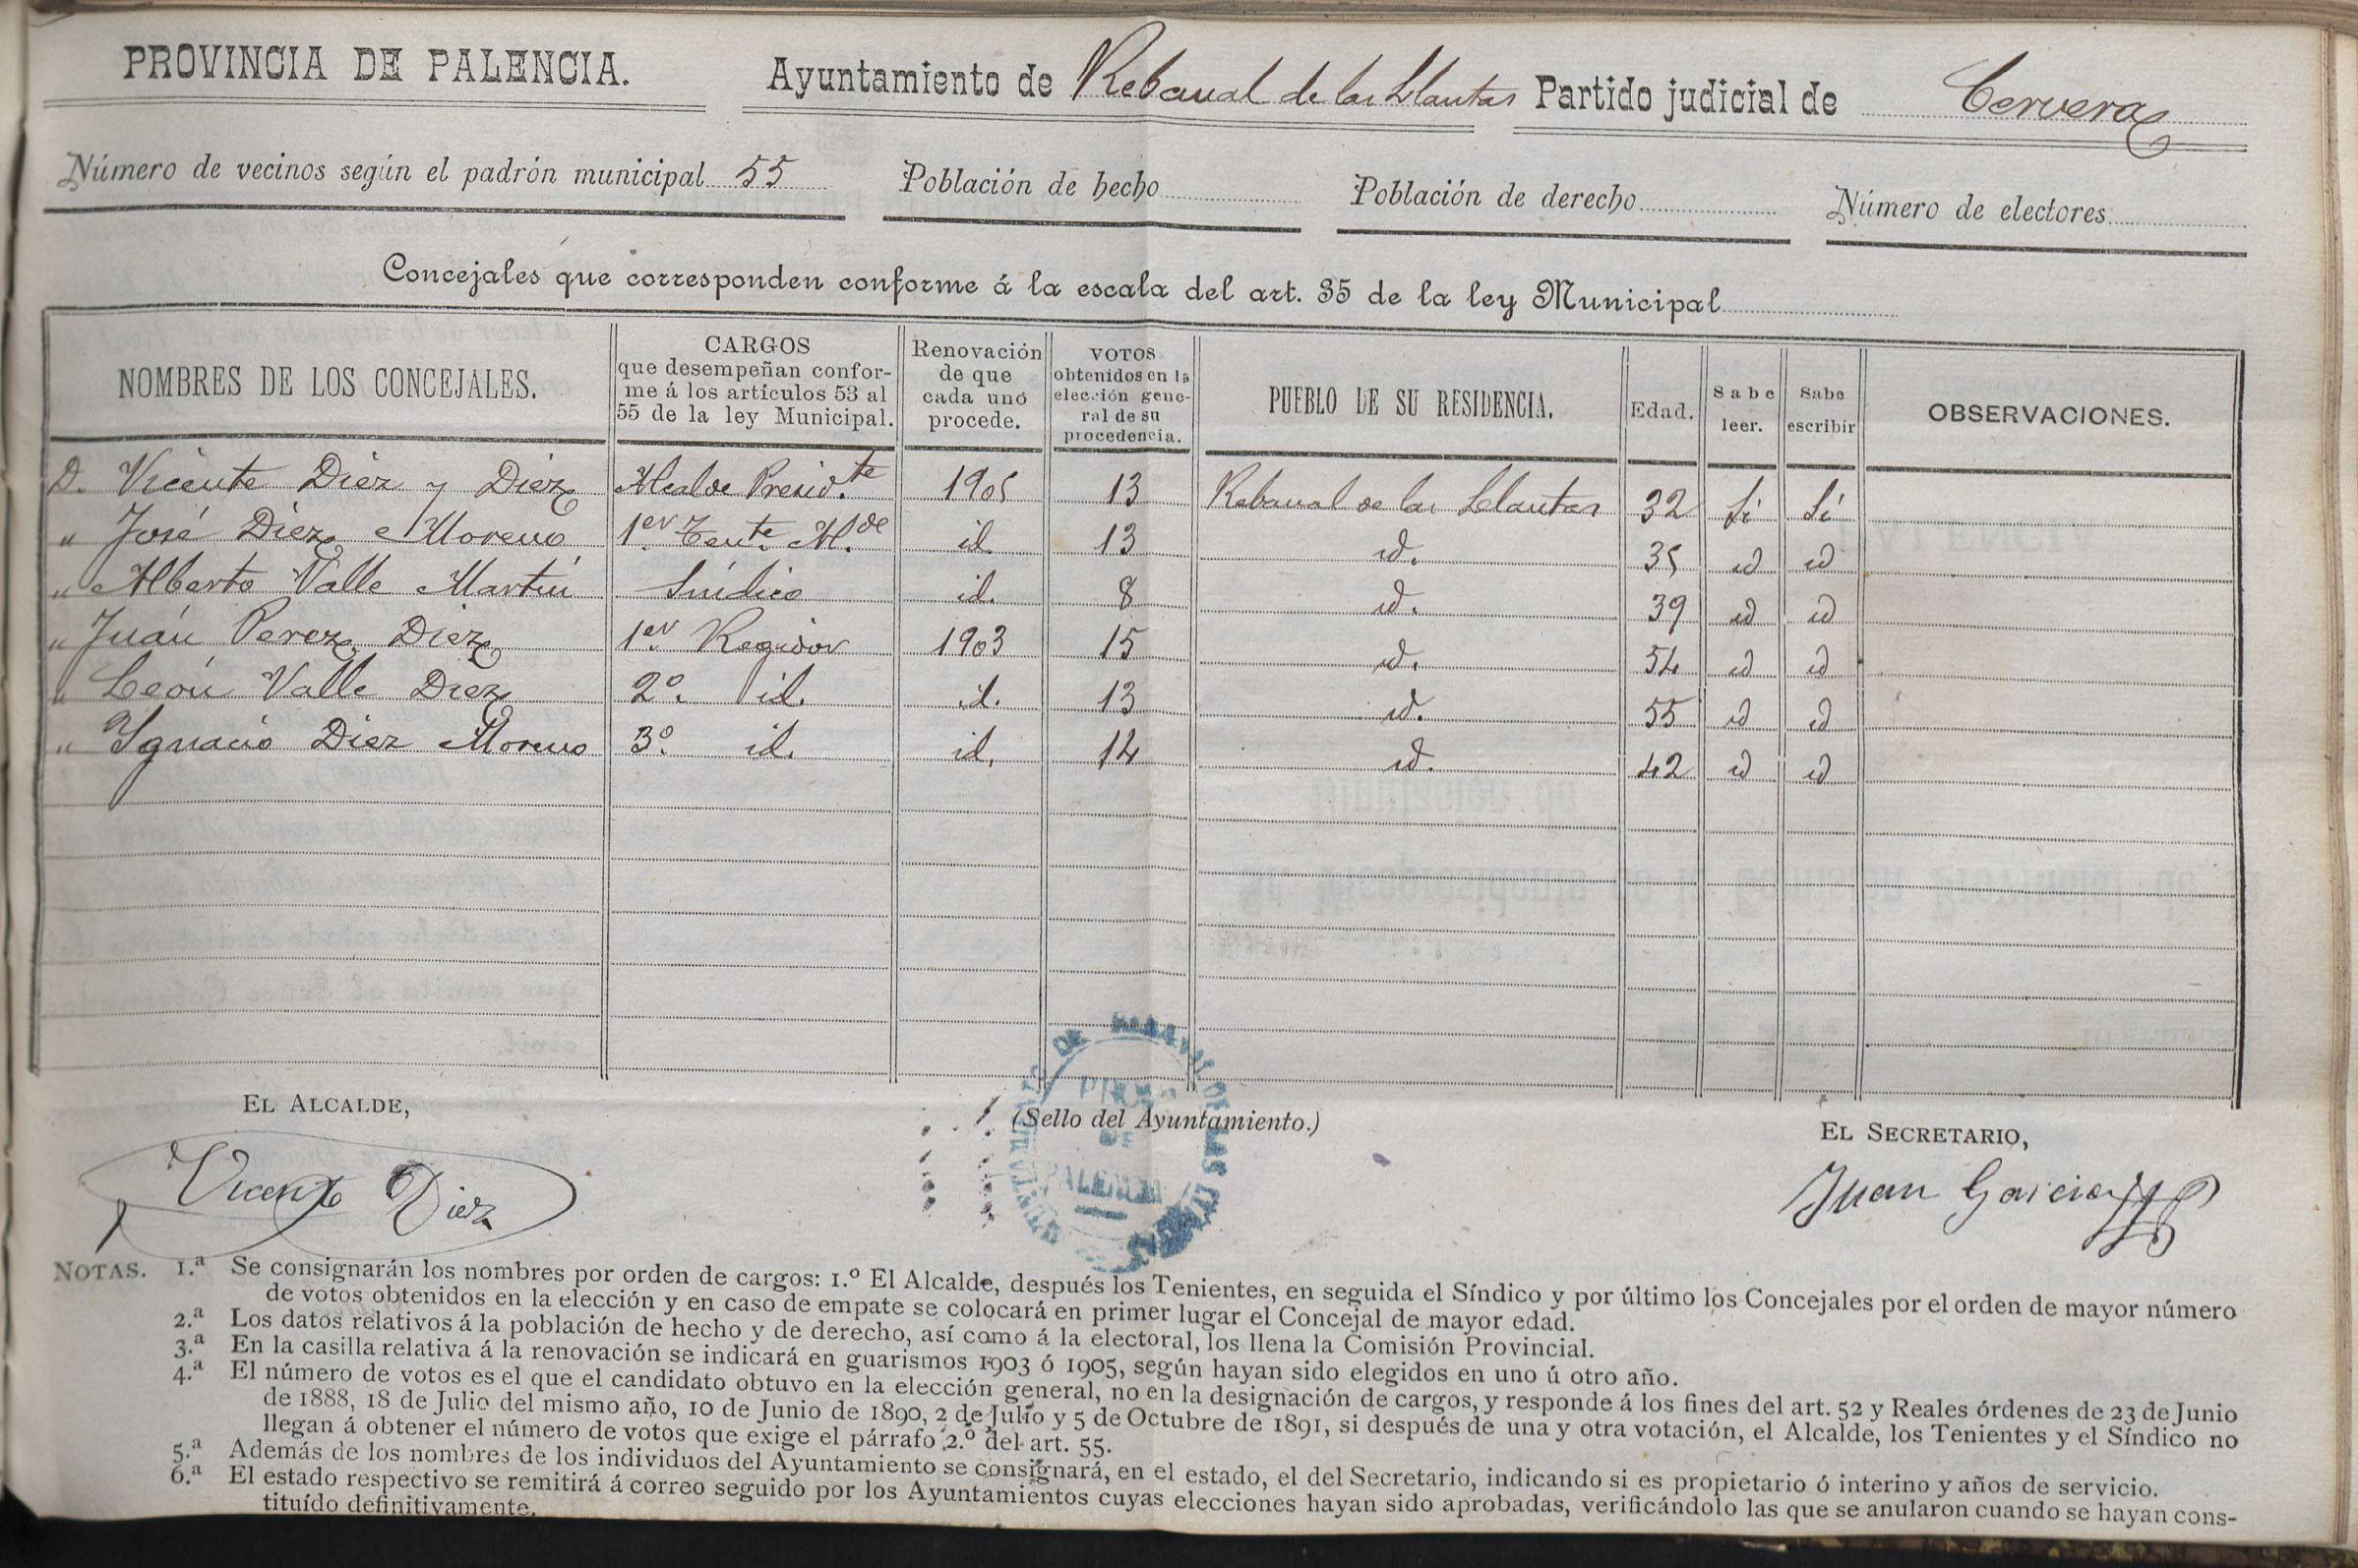 PROVINCIA DE PALENCIA. Ayuntamiento de Rebanal de las Llantas Partido judicial de Cervera
Número de vecinos según el padrón municipal 55 Población de hecho Población de derecho Número de electores
Concejales que corresponden conforme á la escala del art. 35 de la ley Municipal
NOMBRES DE LOS CONCEJALES. CARGOS que desempeñan confor- me á los artículos 53 al 55 de la ley Municipal. Renovación de que cada uno procede. VOTOS obtenidos en la elección gene- ral de su procedencia. PUEBLO DE SU RESIDENCIA. Edad. Sabe leer. Sabe escribir OBSERVACIONES.
D. Vicente Diez y Diez Alcalde Presid.te 1905 13 Rebanal de las Llantas 32 Sí Sí
" José Diez Moreno 1er Tente. Al.de id. 13 id. 35 id id
" Alberto Valle Martín Síndico id. 8 id. 39 id id
" Juán Perez Diez 1er Regidor 1903 15 id. 54 id id
" León Valle Diez 2º. id. id. 13 id. 55 id id
" Ygnacio Diez Moreno 3º. id. id. 14 id. 42 id id
EL ALCALDE,
(Sello del Ayuntamiento.)
EL SECRETARIO,
AYUNTAMIENTO DE REBANAL DE LAS LLANTAS
PROV.
DE
PALENCIA
Vicente Diez
Juan Garcia
NOTAS. 1.ª Se consignarán los nombres por orden de cargos: 1.º El Alcalde, después los Tenientes, en seguida el Síndico y por último los Concejales por el orden de mayor número
de votos obtenidos en la elección y en caso de empate se colocará en primer lugar el Concejal de mayor edad.
2.ª Los datos relativos á la población de hecho y de derecho, así como á la electoral, los llena la Comisión Provincial.
3.ª En la casilla relativa á la renovación se indicará en guarismos 1903 ó 1905, según hayan sido elegidos en uno ú otro año.
4.ª El número de votos es el que el candidato obtuvo en la elección general, no en la designación de cargos, y responde á los fines del art. 52 y Reales órdenes de 23 de Junio
de 1888, 18 de Julio del mismo año, 10 de Junio de 1890, 2 de Julio y 5 de Octubre de 1891, si después de una y otra votación, el Alcalde, los Tenientes y el Síndico no
llegan á obtener el número de votos que exige el párrafo 2.º del art. 55.
5.ª Además de los nombres de los individuos del Ayuntamiento se consignará, en el estado, el del Secretario, indicando si es propietario ó interino y años de servicio.
6.ª El estado respectivo se remitirá á correo seguido por los Ayuntamientos cuyas elecciones hayan sido aprobadas, verificándolo las que se anularon cuando se hayan cons-
tituído definitivamente.